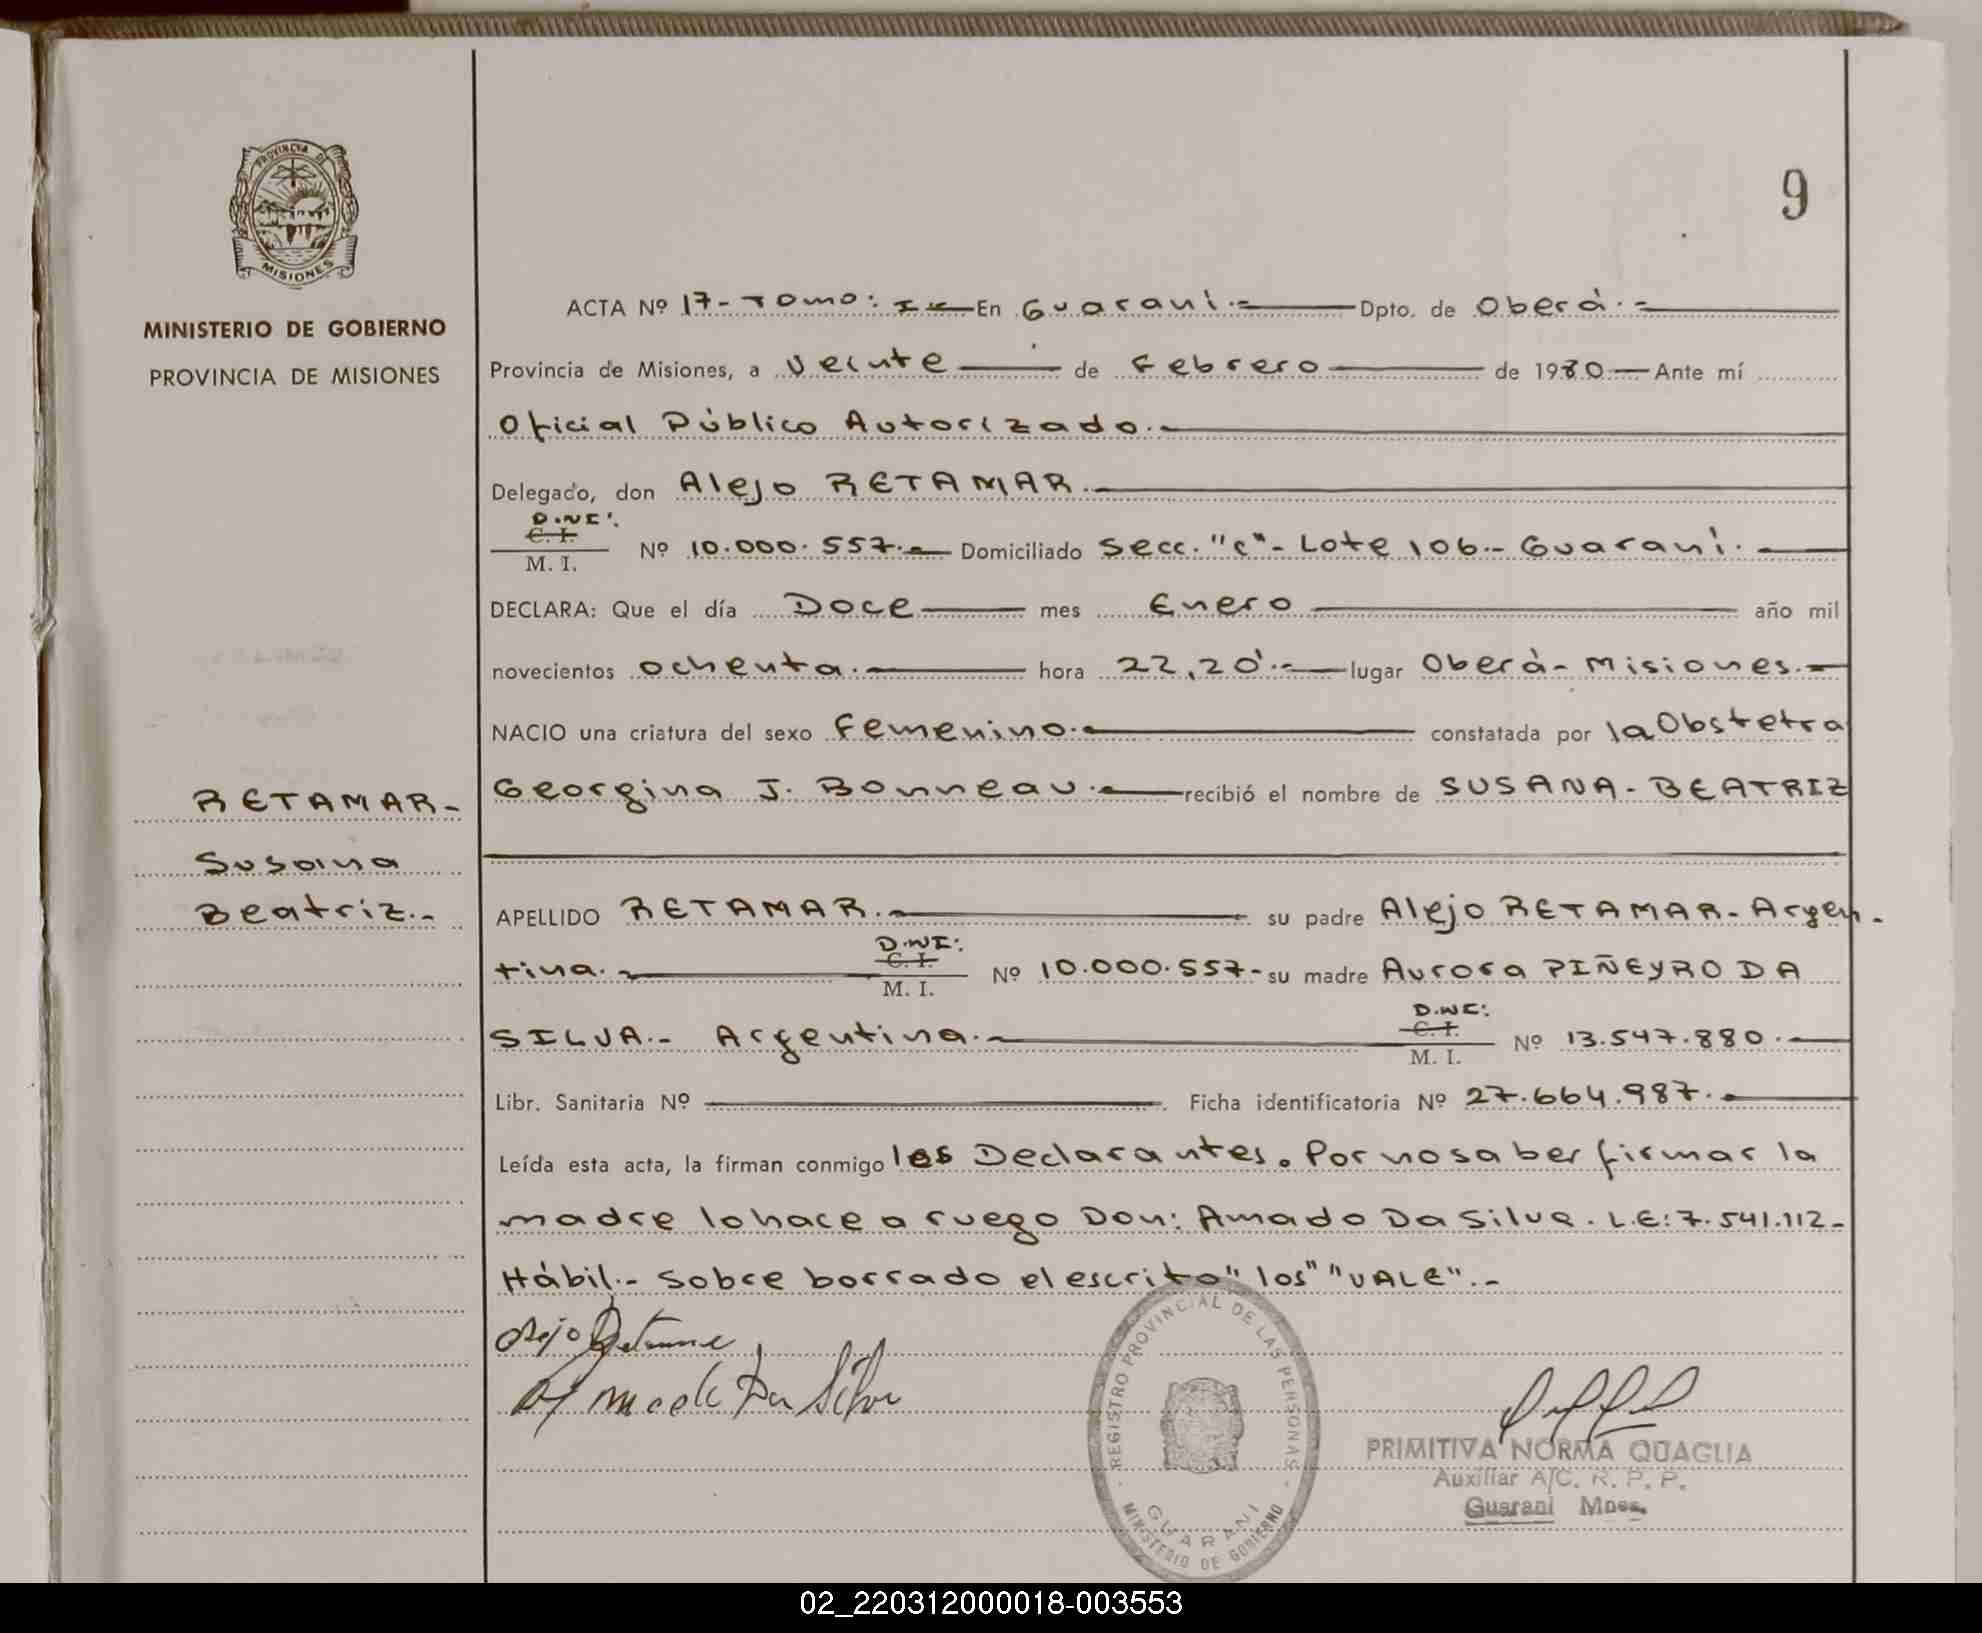 PROVINCIA DE
MISIONES
MINISTERIO DE GOBIERNO
PROVINCIA DE MISIONES
9
ACTA Nº 17 - Tomo: I - En Guaraní.- Dpto. de Oberá.-
Provincia de Misiones, a Veinte de Febrero de 1980.- Ante mí
Oficial Público Autorizado.-
Delegado, don Alejo RETAMAR.-
D.NI:
C. I.
M. I. Nº 10.000.557.- Domiciliado Secc. "C"- Lote 106.- Guaraní.-
DECLARA: Que el día Doce mes Enero año mil
novecientos ochenta.- hora 22,20'.- lugar Oberá- Misiones.-
NACIO una criatura del sexo Femenino.- constatada por la Obstetra
Georgina J. Bonneau.- recibió el nombre de SUSANA - BEATRIZ
RETAMAR-
Susana
Beatriz.-
APELLIDO RETAMAR.- su padre Alejo RETAMAR- Argen-
D.NI:
tina.- C. I. Nº 10.000.557- su madre Aurora PIÑEYRO DA
M. I.
D.NI:
SILVA.- Argentina.- C. I. Nº 13.547.880.-
M. I.
Libr. Sanitaria Nº Ficha identificatoria Nº 27.664.987.-
Leída esta acta, la firman conmigo los Declarantes. Por no saber firmar la
madre lo hace a ruego Don: Amado Da Silva. L.E: 7.541.112-
Hábil.- Sobre borrado el escrito "los" "VALE".-
Alejo Retamar
Amado Da Silva
REGISTRO PROVINCIAL DE LAS PERSONAS
GUARANI
MINISTERIO DE GOBIERNO
PRIMITIVA NORMA QUAGLIA
Auxiliar A/C. R. P. P.
Guaraní Mnes.
02_220312000018-003553